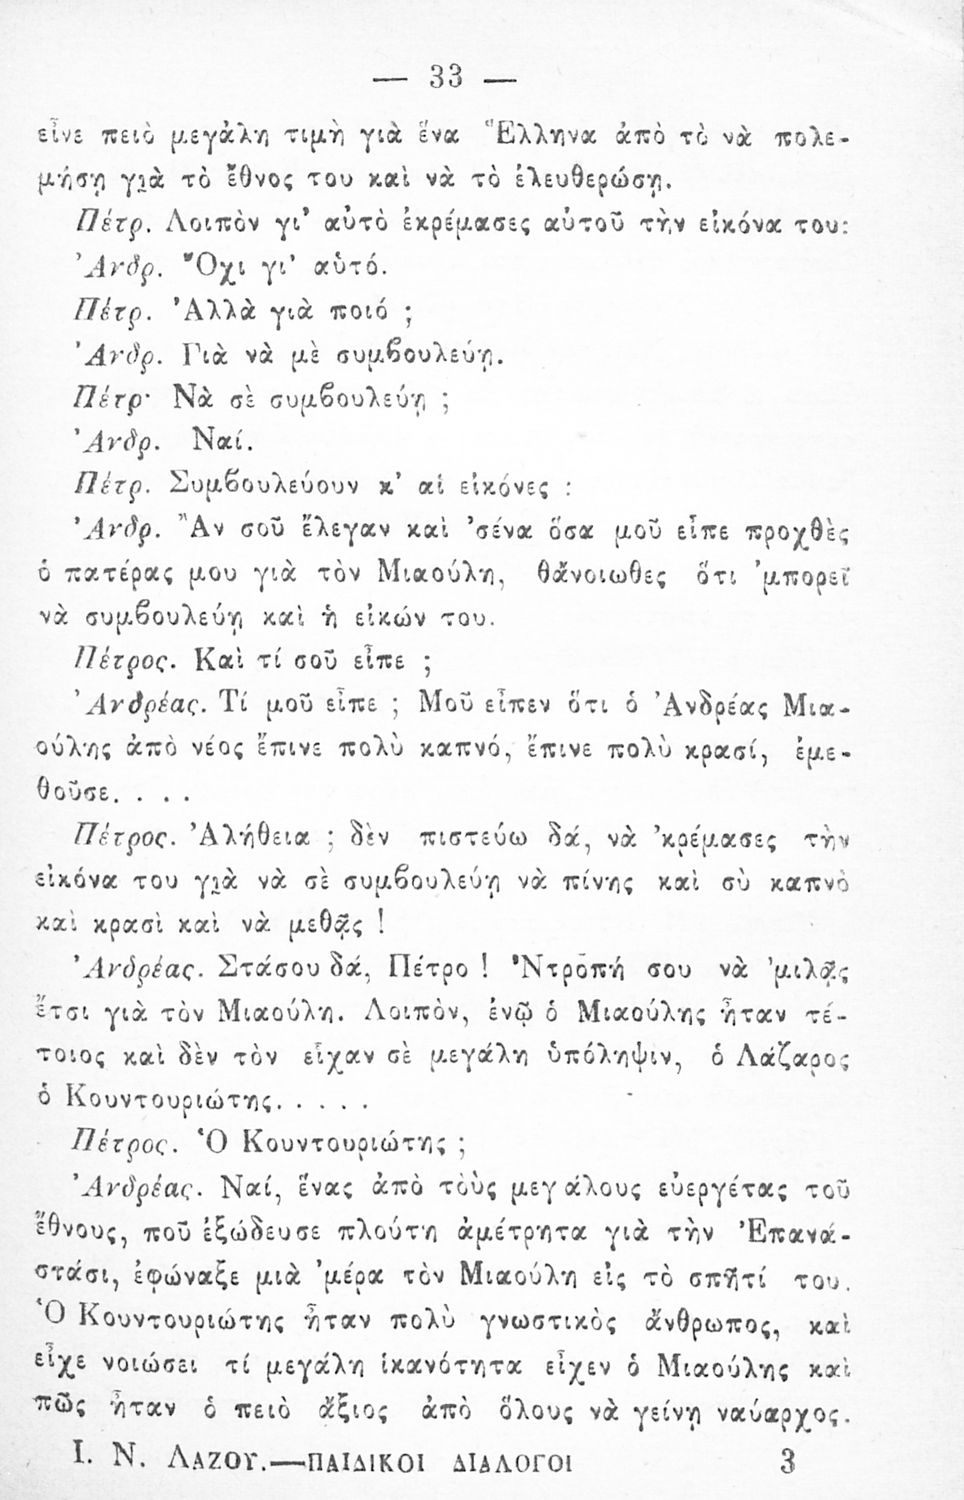 — 33 —
εἶνε πειὸ μεγάλη τιμὴ γιὰ ἕνα Ἕλληνα ἀπὸ τὸ νὰ πολε-
μήσῃ γιὰ τὸ ἔθνος του καὶ νὰ τὸ ἐλευθερώσῃ.
Πέτρ. Λοιπὸν γι' αὐτὸ ἐκρέμασες αὐτοῦ τὴν εἰκόνα του:
Ἀνδρ. Ὄχι γι' αὐτό.
Πέτρ. Ἀλλὰ γιὰ ποιό ;
Ἀνδρ. Γιὰ νὰ μὲ συμβουλεύῃ.
Πέτρ· Νὰ σὲ συμβουλεύῃ ;
Ἀνδρ. Ναί.
Πέτρ. Συμβουλεύουν κ' αἱ εἰκόνες :
Ἀνδρ. Ἂν σοῦ ἔλεγαν καὶ 'σένα ὅσα μοῦ εἶπε προχθὲς
ὁ πατέρας μου γιὰ τὸν Μιαούλη, θἄνοιωθες ὅτι 'μπορεῖ
νὰ συμβουλεύῃ καὶ ἡ εἰκών του.
Πέτρος. Καὶ τί σοῦ εἶπε ;
Ἀνδρέας. Τί μοῦ εἶπε ; Μοῦ εἶπεν ὅτι ὁ Ἀνδρέας Μια-
ούλης ἀπὸ νέος ἔπινε πολὺ καπνό, ἔπινε πολὺ κρασί, ἐμε-
θοῦσε. . . .
Πέτρος. Ἀλήθεια ; δὲν πιστεύω δά, νὰ 'κρέμασες τὴν
εἰκόνα του γιὰ νὰ σὲ συμβουλεύῃ νὰ πίνῃς καὶ σὺ καπνὸ
καὶ κρασὶ καὶ νὰ μεθᾷς !
Ἀνδρέας. Στάσου δά, Πέτρο ! Ντροπή σου νὰ 'μιλᾷς
ἔτσι γιὰ τὸν Μιαούλη. Λοιπὸν, ἐνῷ ὁ Μιαούλης ἦταν τέ-
τοιος καὶ δὲν τὸν εἶχαν σὲ μεγάλη ὑπόληψιν, ὁ Λάζαρος
ὁ Κουντουριώτης. . . . .
Πέτρος. Ὁ Κουντουριώτης ;
Ἀνδρέας. Ναί, ἕνας ἀπὸ τοὺς μεγάλους εὐεργέτας τοῦ
ἔθνους, ποῦ ἐξώδευσε πλούτη ἀμέτρητα γιὰ τὴν Ἐπανά-
στάσι, ἐφώναξε μιὰ 'μέρα τὸν Μιαούλη εἰς τὸ σπῆτί του.
Ὁ Κουντουριώτης ἦταν πολὺ γνωστικὸς ἄνθρωπος, καὶ
εἶχε νοιώσει τί μεγάλη ἱκανότητα εἶχεν ὁ Μιαούλης καὶ
πῶς ἦταν ὁ πειὸ ἄξιος ἀπὸ ὅλους νὰ γείνῃ ναύαρχος.
Ι. Ν. ΛΑΖΟΥ.—ΠΑΙΔΙΚΟΙ ΔΙΑΛΟΓΟΙ 3